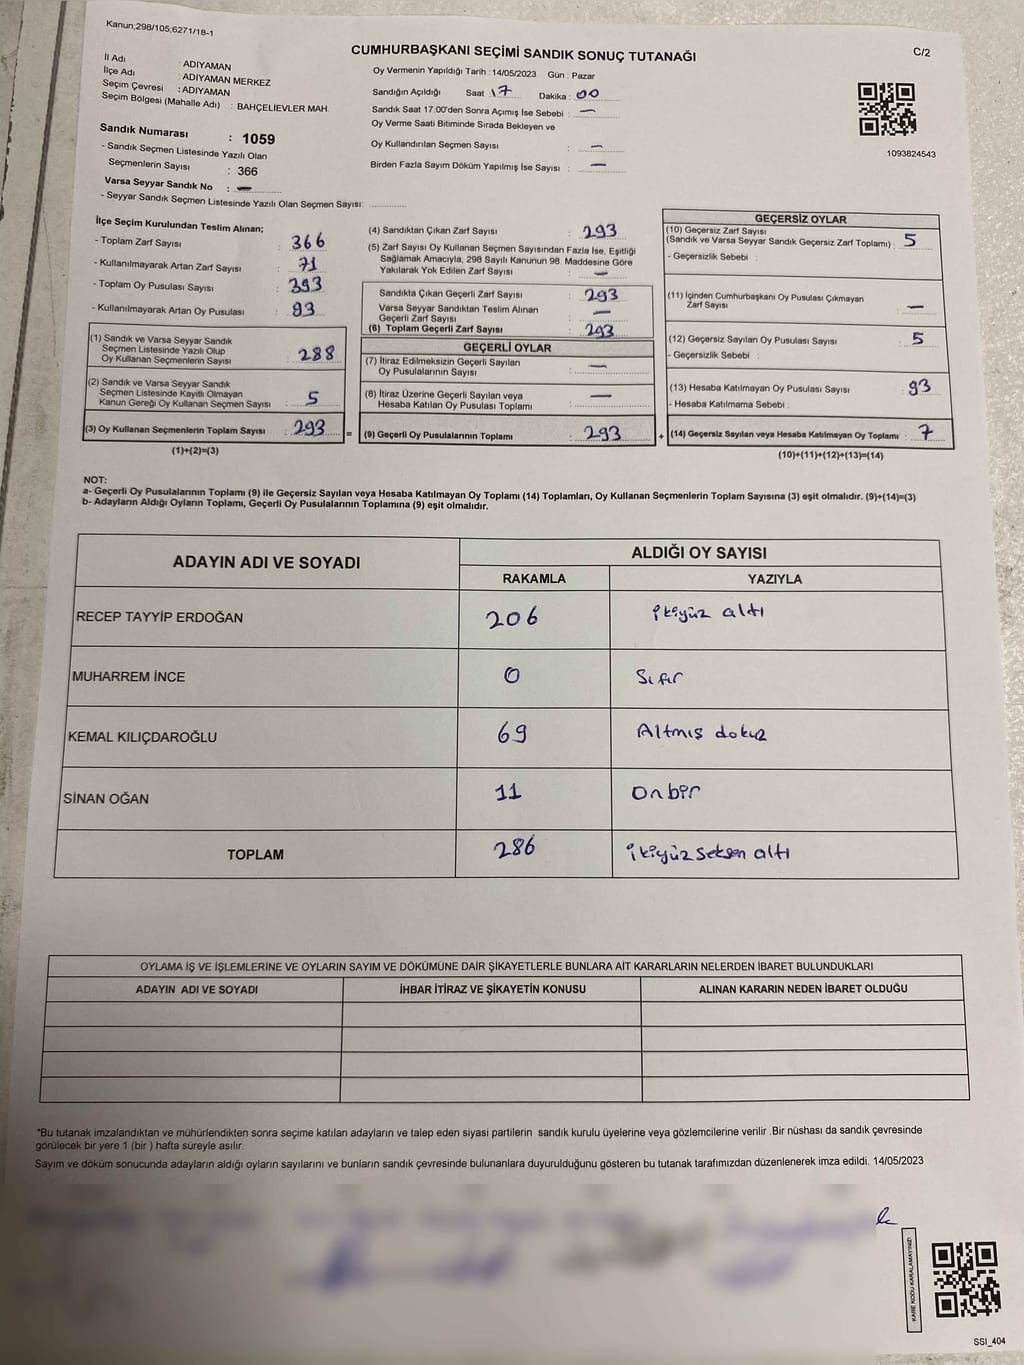 Kanun;298/105,6271/18-1
C/2
CUMHURBAŞKANI SEÇİMİ SANDIK SONUÇ TUTANAĞI
İl Adı : ADIYAMAN
İlçe Adı : ADIYAMAN MERKEZ
Seçim Çevresi : ADIYAMAN
Seçim Bölgesi (Mahalle Adı) : BAHÇELİEVLER MAH.
Sandık Numarası : 1059
- Sandık Seçmen Listesinde Yazılı Olan
Seçmenlerin Sayısı : 366
Varsa Seyyar Sandık No : —
- Seyyar Sandık Seçmen Listesinde Yazılı Olan Seçmen Sayısı:
Oy Vermenin Yapıldığı Tarih :14/05/2023 Gün : Pazar
Sandığın Açıldığı Saat 17 Dakika : 00
Sandık Saat 17:00'den Sonra Açımış İse Sebebi : —
Oy Verme Saati Bitiminde Sırada Bekleyen ve
Oy Kullandırılan Seçmen Sayısı : —
Birden Fazla Sayım Döküm Yapılmış İse Sayısı : —
1093824543
İlçe Seçim Kurulundan Teslim Alınan;
- Toplam Zarf Sayısı : 366
- Kullanılmayarak Artan Zarf Sayısı : 71
- Toplam Oy Pusulası Sayısı : 393
- Kullanılmayarak Artan Oy Pusulası : 93
(1) Sandık ve Varsa Seyyar Sandık
Seçmen Listesinde Yazılı Olup
Oy Kullanan Seçmenlerin Sayısı : 288
(2) Sandık ve Varsa Seyyar Sandık
Seçmen Listesinde Kayıtlı Olmayan
Kanun Gereği Oy Kullanan Seçmen Sayısı : 5
(3) Oy Kullanan Seçmenlerin Toplam Sayısı : 293
(1)+(2)=(3)
(4) Sandıktan Çıkan Zarf Sayısı : 293
(5) Zarf Sayısı Oy Kullanan Seçmen Sayısından Fazla İse, Eşitliği
Sağlamak Amacıyla, 298 Sayılı Kanunun 98. Maddesine Göre
Yakılarak Yok Edilen Zarf Sayısı : —
Sandıkta Çıkan Geçerli Zarf Sayısı : 293
Varsa Seyyar Sandıktan Teslim Alınan
Geçerli Zarf Sayısı : —
(6) Toplam Geçerli Zarf Sayısı : 293
GEÇERLİ OYLAR
(7) İtiraz Edilmeksizin Geçerli Sayılan
Oy Pusulalarının Sayısı : —
(8) İtiraz Üzerine Geçerli Sayılan veya
Hesaba Katılan Oy Pusulası Toplamı : —
= (9) Geçerli Oy Pusulalarının Toplamı : 293
GEÇERSİZ OYLAR
(10) Geçersiz Zarf Sayısı
(Sandık ve Varsa Seyyar Sandık Geçersiz Zarf Toplamı) : 5
- Geçersizlik Sebebi :
(11) İçinden Cumhurbaşkanı Oy Pusulası Çıkmayan
Zarf Sayısı : —
(12) Geçersiz Sayılan Oy Pusulası Sayısı : 5
- Geçersizlik Sebebi :
(13) Hesaba Katılmayan Oy Pusulası Sayısı : 93
- Hesaba Katılmama Sebebi :
+ (14) Geçersiz Sayılan veya Hesaba Katılmayan Oy Toplamı : 7
(10)+(11)+(12)+(13)=(14)
NOT:
a- Geçerli Oy Pusulalarının Toplamı (9) ile Geçersiz Sayılan veya Hesaba Katılmayan Oy Toplamı (14) Toplamları, Oy Kullanan Seçmenlerin Toplam Sayısına (3) eşit olmalıdır. (9)+(14)=(3)
b- Adayların Aldığı Oyların Toplamı, Geçerli Oy Pusulalarının Toplamına (9) eşit olmalıdır.
ADAYIN ADI VE SOYADI ALDIĞI OY SAYISI
RAKAMLA YAZIYLA
RECEP TAYYİP ERDOĞAN 206 ikiyüz altı
MUHARREM İNCE 0 Sıfır
KEMAL KILIÇDAROĞLU 69 Altmış dokuz
SİNAN OĞAN 11 Onbir
TOPLAM 286 ikiyüz seksen altı
OYLAMA İŞ VE İŞLEMLERİNE VE OYLARIN SAYIM VE DÖKÜMÜNE DAİR ŞİKAYETLERLE BUNLARA AİT KARARLARIN NELERDEN İBARET BULUNDUKLARI
ADAYIN ADI VE SOYADI İHBAR İTİRAZ VE ŞİKAYETİN KONUSU ALINAN KARARIN NEDEN İBARET OLDUĞU
*Bu tutanak imzalandıktan ve mühürlendikten sonra seçime katılan adayların ve talep eden siyasi partilerin sandık kurulu üyelerine veya gözlemcilerine verilir .Bir nüshası da sandık çevresinde
görülecek bir yere 1 (bir ) hafta süreyle asılır.
Sayım ve döküm sonucunda adayların aldığı oyların sayılarını ve bunların sandık çevresinde bulunanlara duyurulduğunu gösteren bu tutanak tarafımızdan düzenlenerek imza edildi. 14/05/2023
KARE KODU KARALAMAYINIZ!
SSI_404